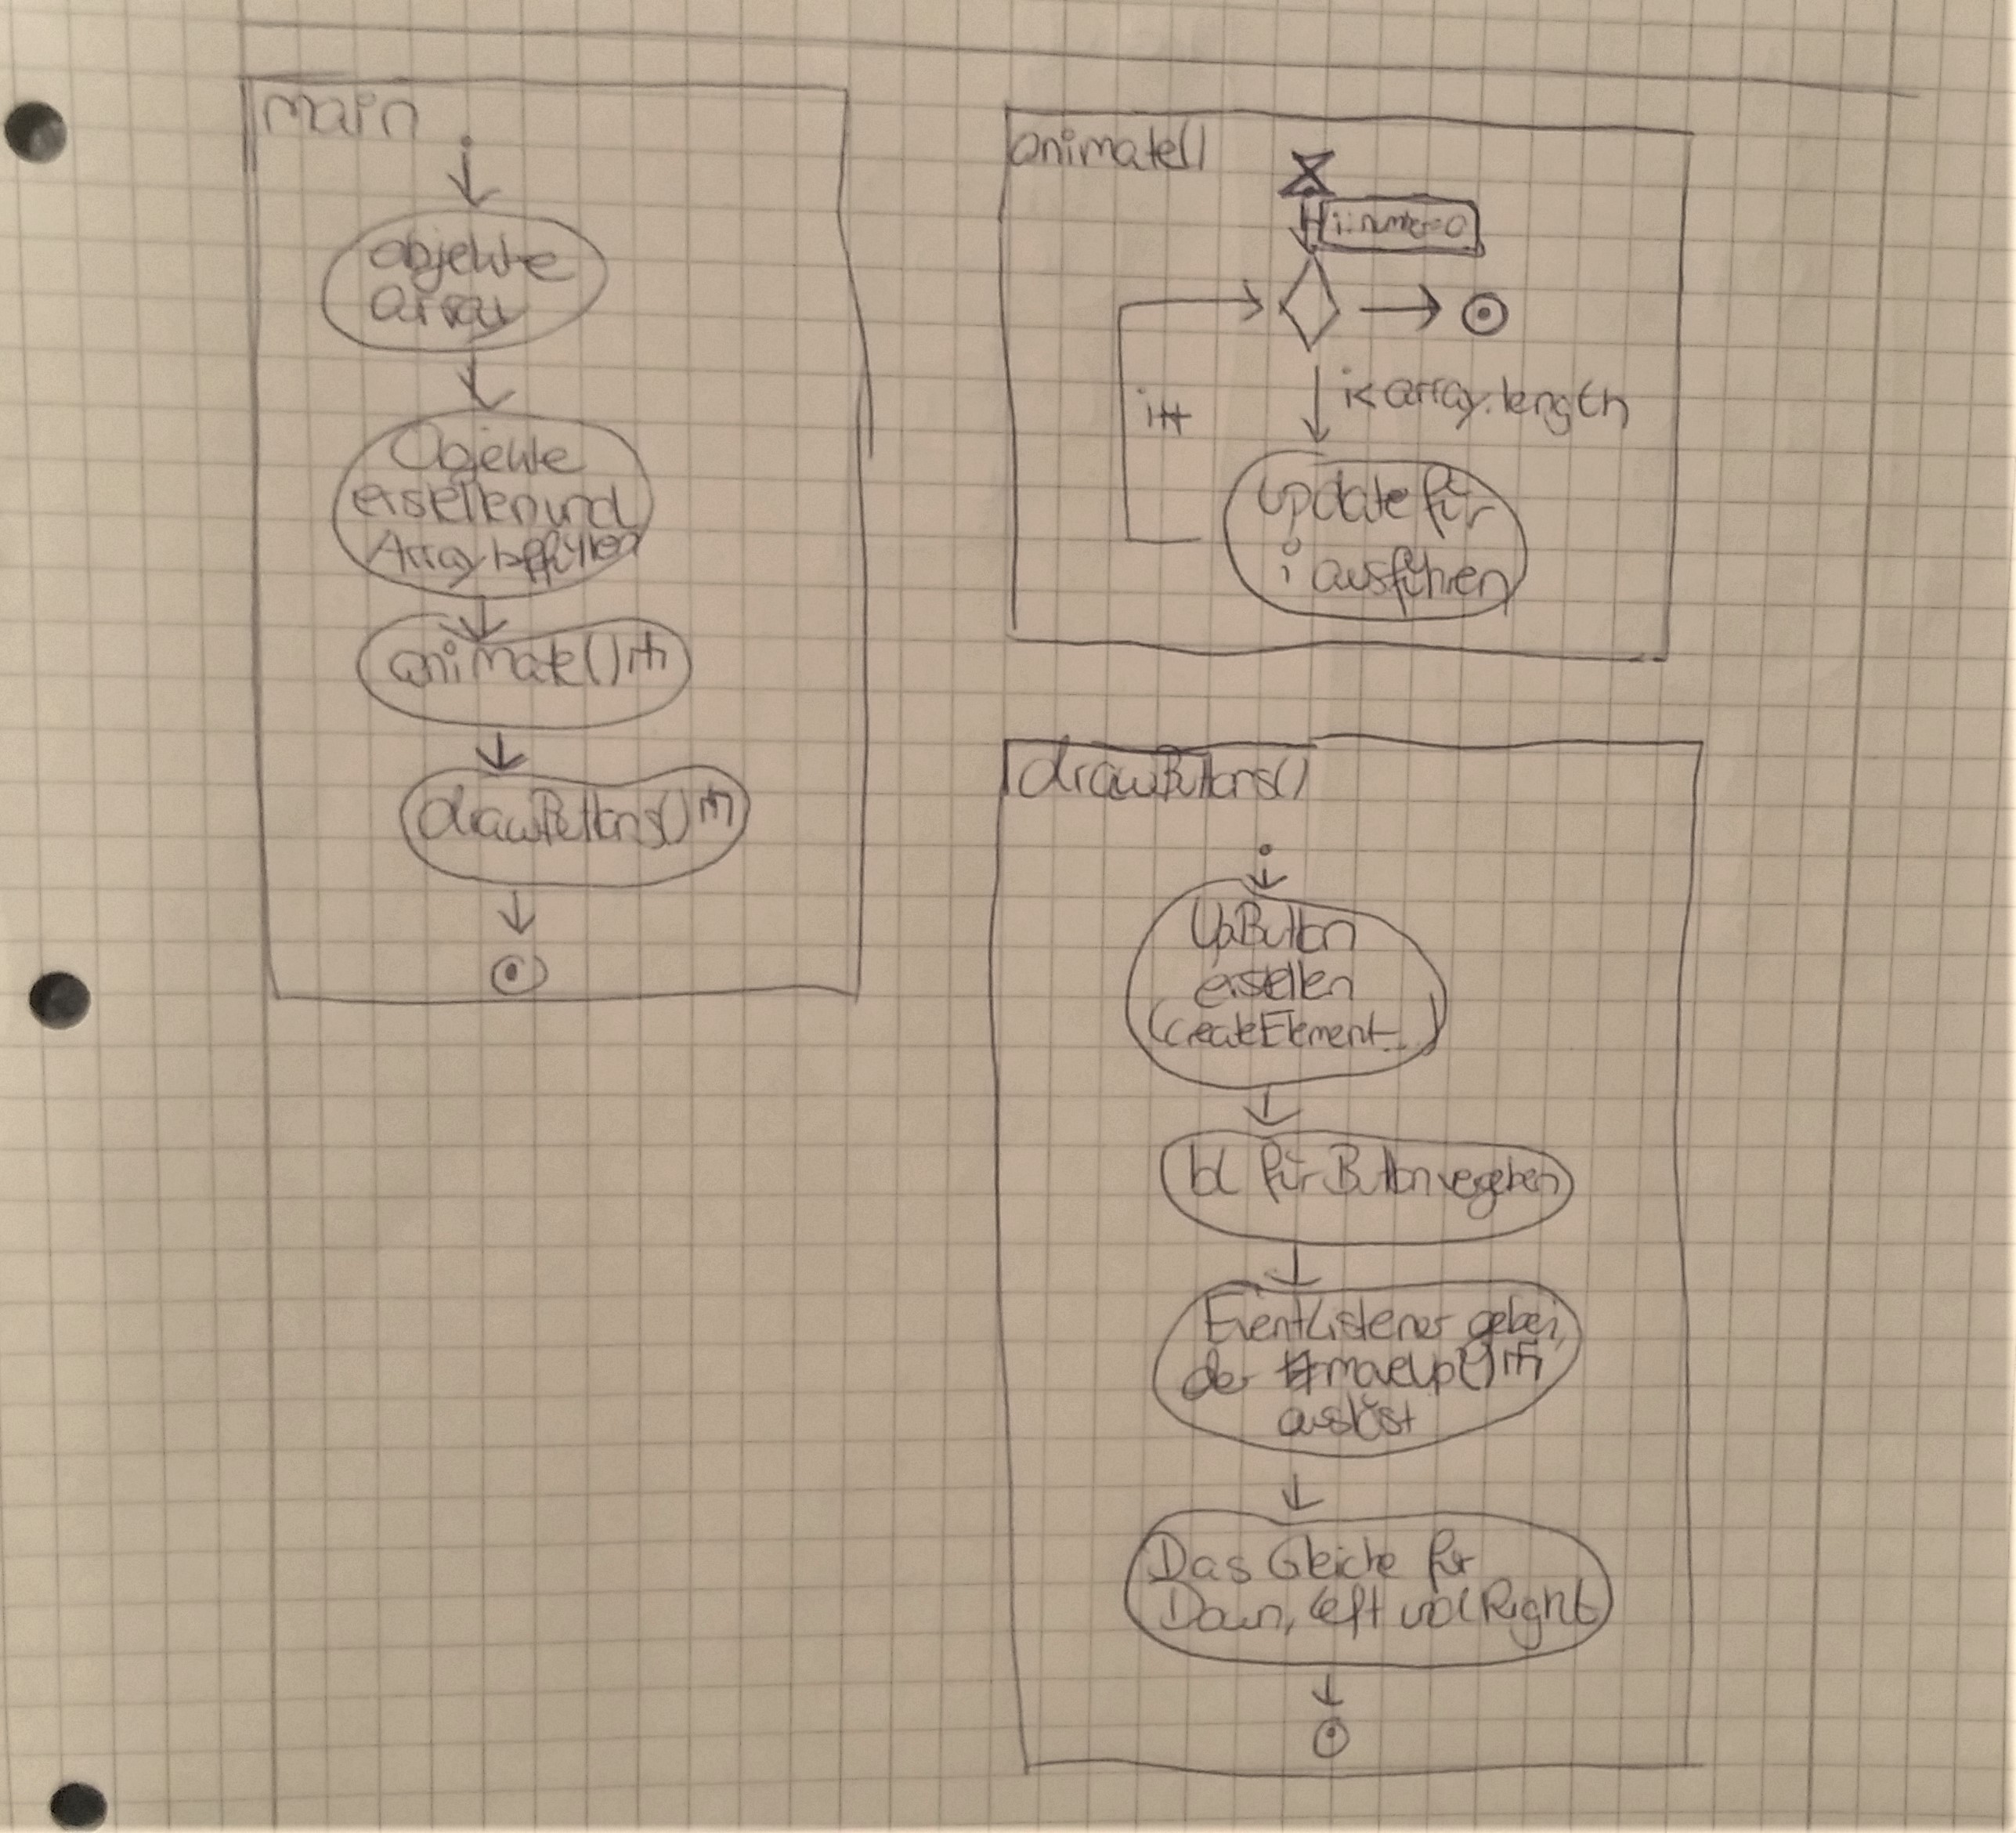 main
objekte
array
Objekte
erstellen und
Array befüllen
animate()
drawButtons()
animate()
i:number=0
i<array.length
i++
update für
i ausführen
drawButtons()
UpButton
erstellen
(createElement...)
Id für Button vergeben
EventListener geben,
der moveUp()
auslöst
Das Gleiche für
Down, Left und Right